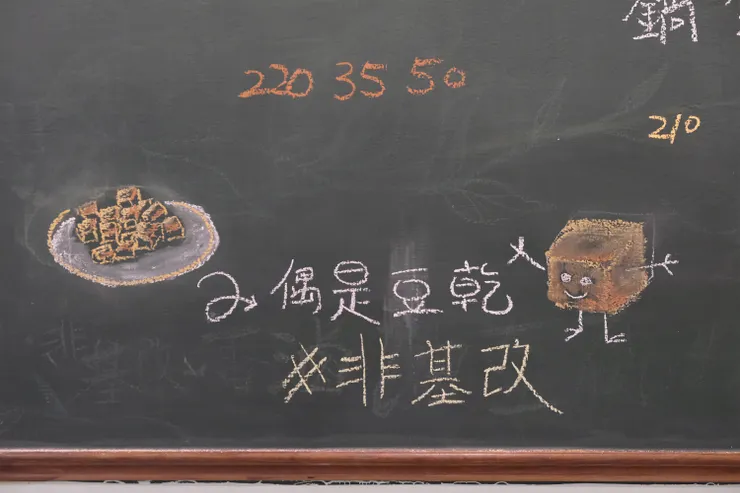 鍋
220 35 50
210
偶是豆乾
※非基改